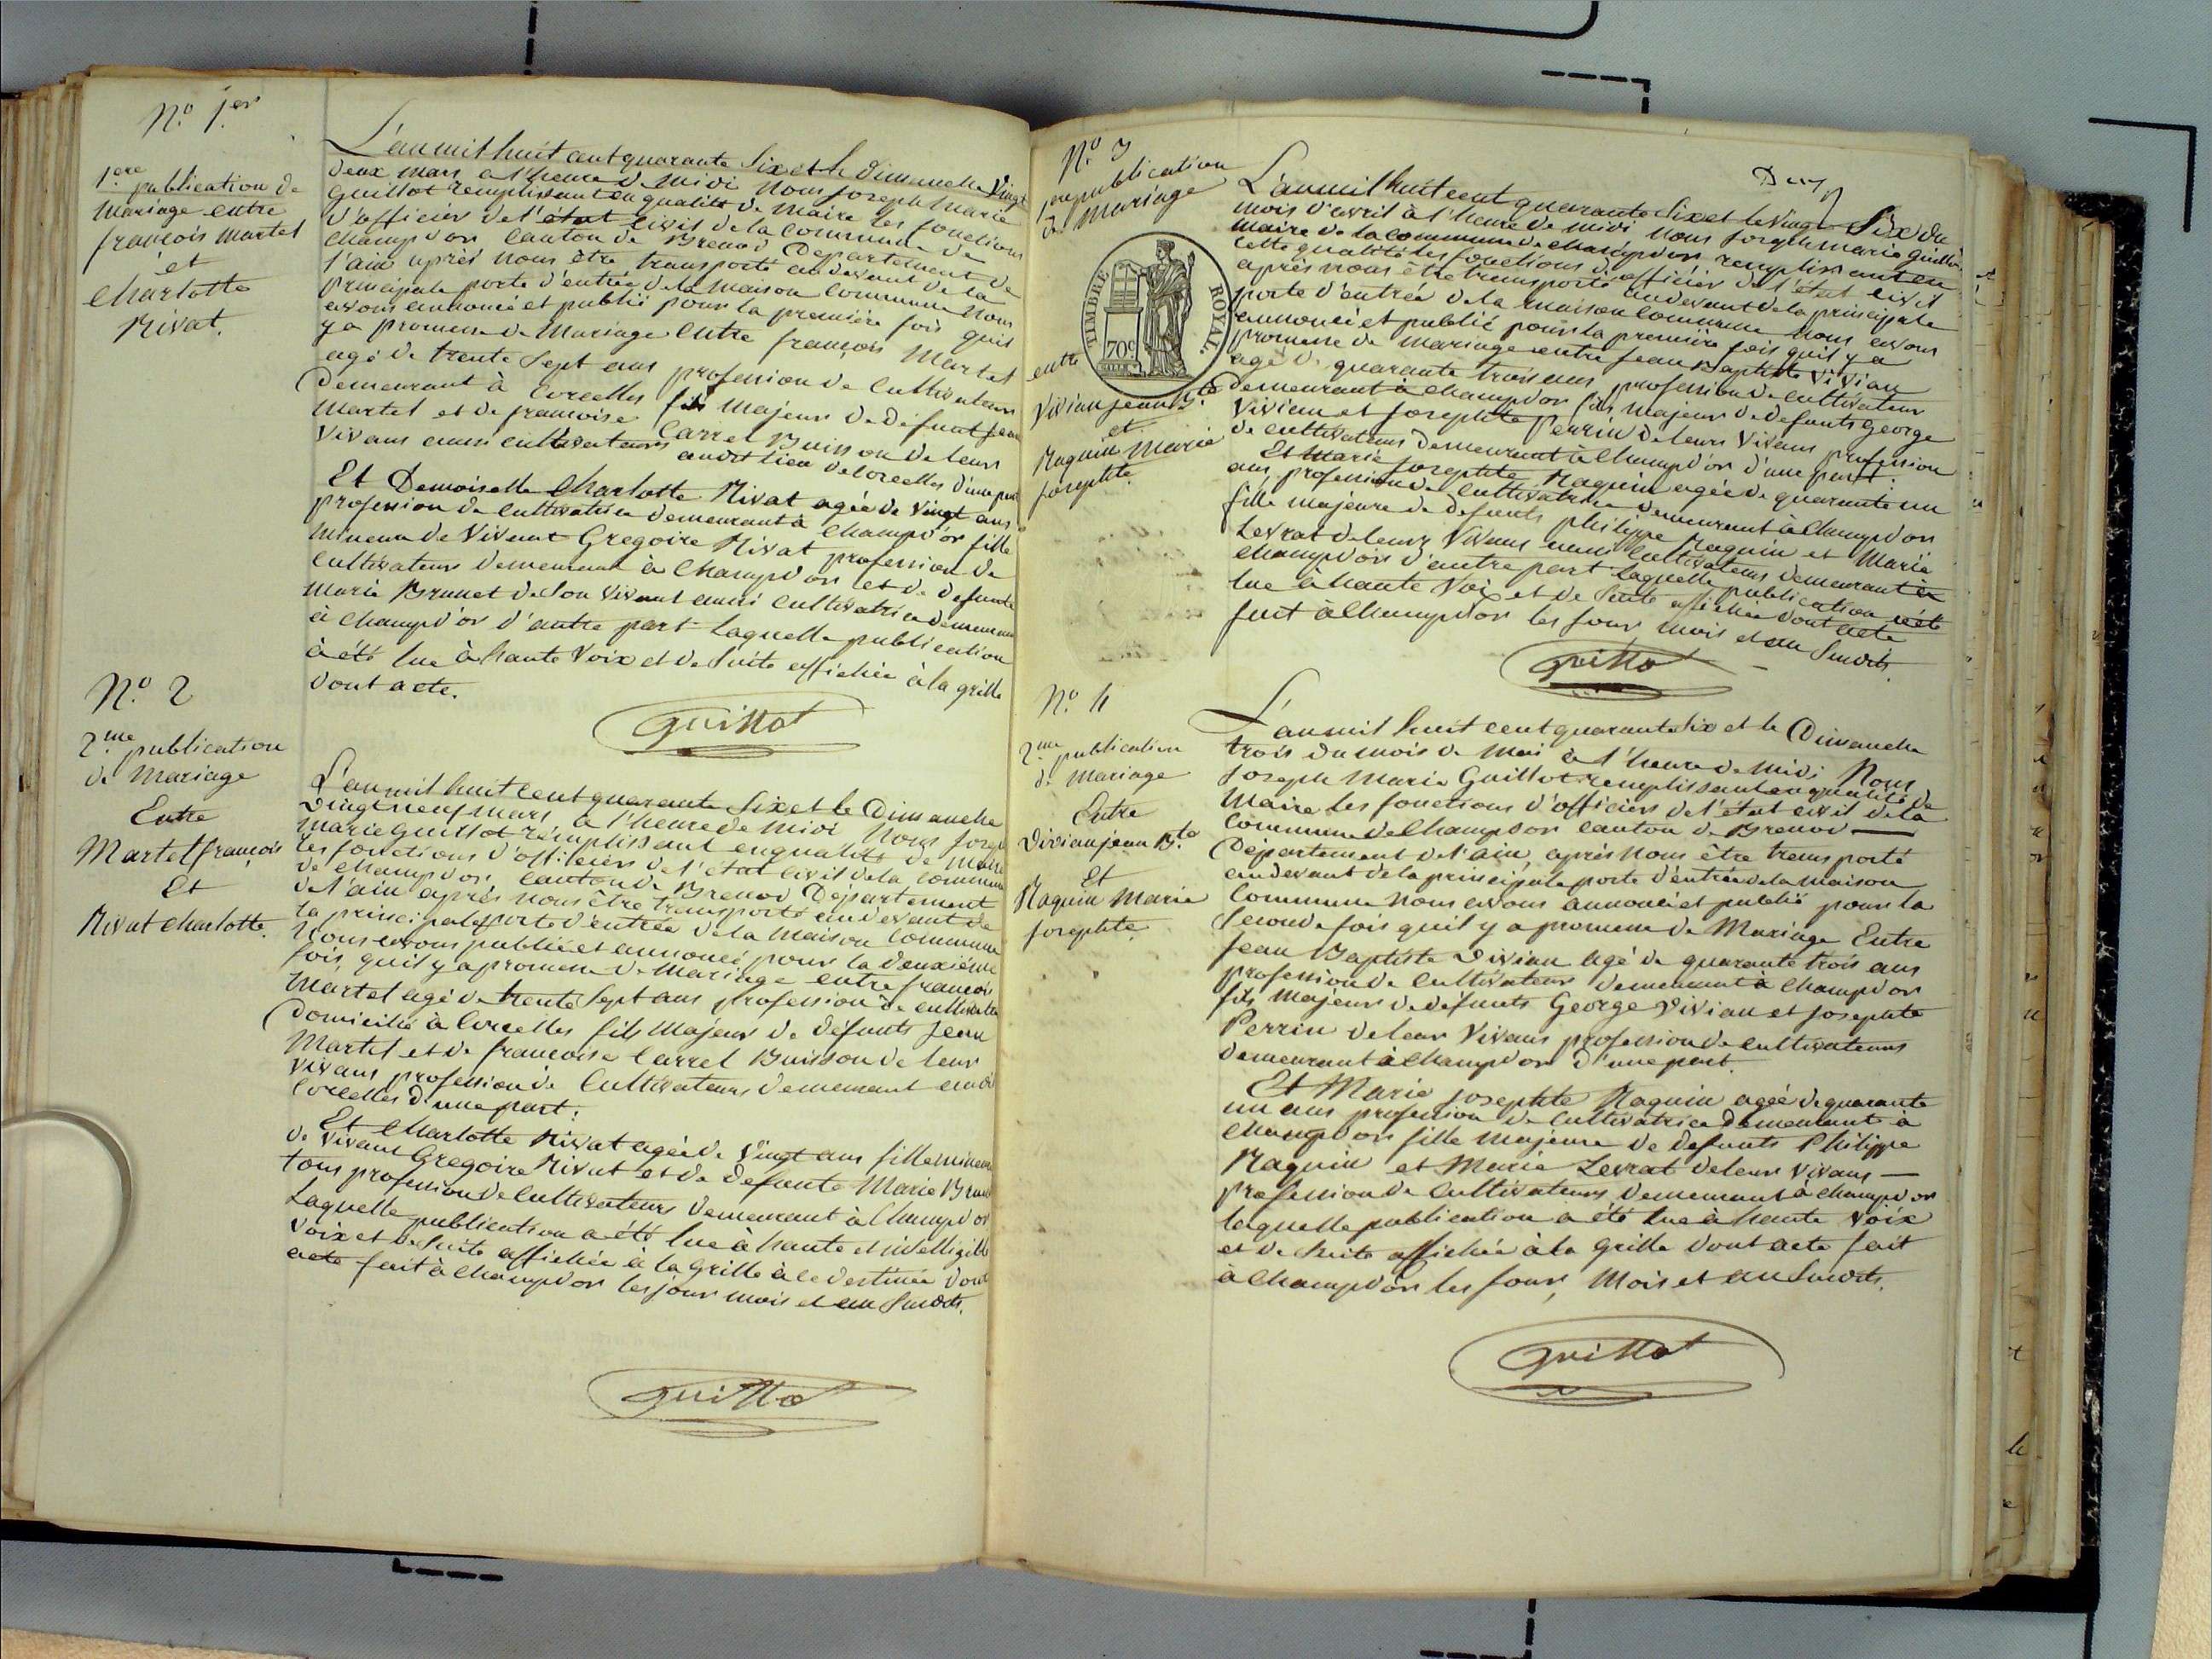 N.º 1.er
1.ere publication de
Mariage entre
françois Martel
et
Charlotte
Nivat.
L'an mil huit cent quarante Six et le Dimanche Vingt
deux mars a l'heure de midi Nous Joseph Marie
Guillot remplissant en qualité de Maire les fonctions
d'officier de l'état civil de la Commune de
Champdor Canton de Brenod Departement de
l'ain après nous être transporté au devant de la
principale porte d'entrée de la maison Commune Nous
avons annoncé et publié pour la première fois quil
y a promesse de Mariage Entre françois Martel
agé de trente Sept ans profession de Cultivateur
Demeurant à Corcelles fils Majeur de Défunt Jean
Martel et de francoise Carrel Buisson de leurs
Vivans aussi cultivateurs audit lieu de Corcelles d'une part
Et Demoiselle Charlotte Nivat agée de Vingt ans
profession de Cultivatrice demeurant à Champd'or fille
Mineure de Vivant Gregoire Nivat profession de
Cultivateur demeurant à Champdor et de defunte
Marie Brunet de Son Vivant aussi Cultivatrice demeurant
à Champd'or d'autre part Laquelle publication
à été lue à haute Voix et de Suite affichée à la grille
dont acte.
Guillot
N.º 2
2.me publication
de Mariage
Entre
Martel françois
Et
Nivat Charlotte.
L'an mil huit Cent quarante Six et le Dimanche
Vingt neuf mars à l'heure de Midi Nous Joseph
Marie Guillot remplissant en qualité de Maire
les fonctions d'officier de l'état Civil de la Commune
de Champdor Canton de Brenod Département
de l'ain après nous être transporté au devant de
la principale porte d'entrée de la Maison Commune
Nous avons publié et annoncé pour la deuxiéme
fois, quil y a promesse de Mariage entre françois
Martel agé de trente Sept ans profession de cultivateur
Domicilié à Corcelles fils Majeur de Défunts Jean
Martel et de francoise Carrel Buisson de leur
Vivans profession de Cultivateurs demeurant audit
Corcelles d'une part.
Et Charlotte Nivat agée de Vingt ans fille mineure
de Vivant Gregoire Nivat et de defunte Marie Brunet
tous profession de Cultivateurs demeurant à Champdor
Laquelle publication a été lue à haute et intelligible
Voix et de Suite affichée à la Grille à ce destinée dont
acte fait à Champdor les jour mois et an Susdits.
Guillot
N.º 3
1.ere publication
de Mariage
TIMBRE ROYAL.
70c
entre
Vivian Jean B.te
et
Naquin Marie
Josephte.
Deux
L'an mil huit cent quarante Six et le Vingt Six du
mois d'avril à l'heure de midi Nous Joseph Marie Guillot
Maire de la Commune de Champdor remplissant en
cette qualité les fonctions d'officier de l'état civil
après nous être transporté au devant de la principale
porte d'entrée de la Maison Commune Nous avons
annoncé et publié pour la première fois quil y a
promesse de Mariage entre Jean Baptiste Vivian
agé de quarante trois ans profession de Cultivateur
Demeurant à Champdor fils Majeur de defunts George
Vivian et Josephte Perrin de leurs Vivans profession
de cultivateurs Demeurant à Champd'or d'une part.
Et Marie Josephte Naquin agée de quarante un
ans profession de Cultivatrice Demeurant à Champdor
fille majeure de defunts Philippe Naquin et Marie
Levrat de leurs Vivans aussi Cultivateurs demeurant à
Champdor d'autre part Laquelle publication a été
lue à haute Voix et de Suite affichée dont acte
fait à Champdor les jour mois et an Susdits.
Guillot
N.º 4
2.me publication
de Mariage
Entre
Vivian Jean B.te
Et
Naquin Marie
Josephte.
L'an mil huit cent quarante Six et le Dimanche
trois du mois de Mai à l'heure de Midi Nous
Joseph Marie Guillot remplissant en qualité de
Maire les fonctions d'officier de l'état civil de la
Commune de Champdor Canton de Brenod —
Département de l'ain, après Nous être transporté
au devant de la principale porte d'entrée de la Maison
Commune Nous avons annoncé et publié pour la
Seconde fois quil y a promesse de Mariage Entre
Jean Baptiste Vivian agé de quarante trois ans
profession de Cultivateur Demeurant à Champdor
fils Majeur de défunts George Vivian et Josephte
Perrin de leur Vivans profession de Cultivateurs
demeurant à Champdor d'une part.
Et Marie Josephte Naquin agée de quarante
un ans profession de Cultivatrice Demeurant à
Champdor fille Majeure de Defunts Philippe
Naquin et Marie Levrat de leur Vivans —
profession de Cultivateurs demeurant à Champdor
laquelle publication a été lue à haute Voix
et de Suite affichée à la Grille dont acte fait
à Champdor les jour, Mois et an Susdits.
Guillot